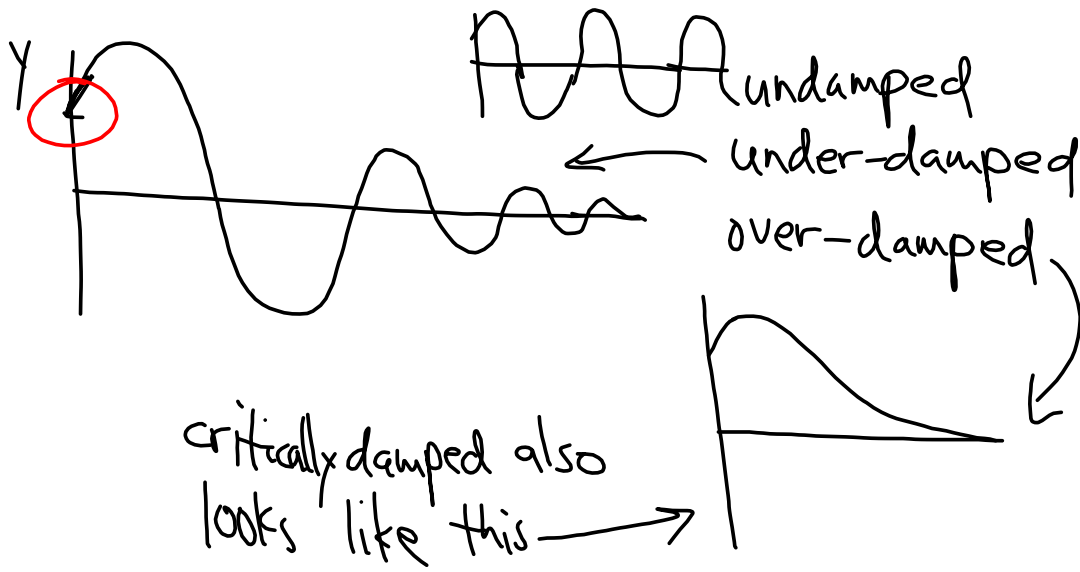 y
undamped
under-damped
over-damped
critically damped also
looks like this